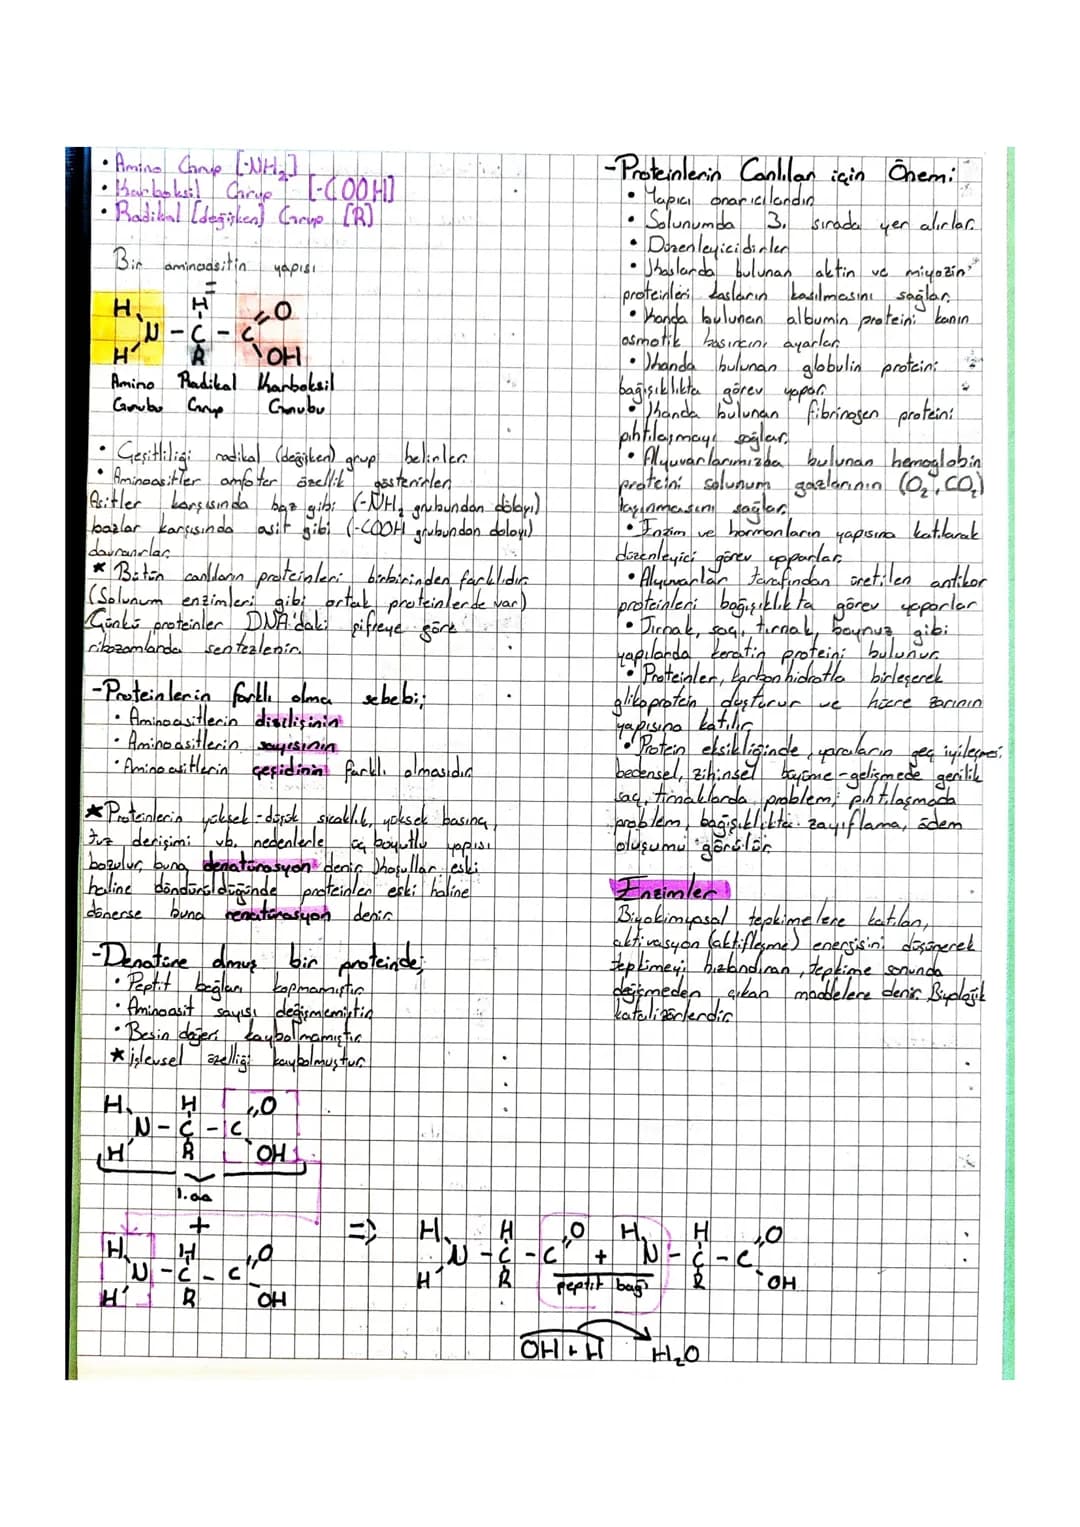 • Amino Grup [-NH₂]
• Karboksil Grup [-COOH]
• Radikal [değişken] Grup [R]
Bir aminoasitin yapısı
H H O
N - C - C
H R OH
Amino Radikal Karboksil
Grubu Grup Grubu
• Çeşitliliği radikal (değişken) grup belirler.
• Aminoasitler amfoter özellik gösterirler.
Asitler karşısında baz gibi (-NH₂ grubundan dolayı)
bazlar karşısında asit gibi (-COOH grubundan dolayı)
davranırlar.
* Bütün canlıların proteinleri birbirinden farklıdır.
(Solunum enzimleri gibi ortak proteinlerde var)
Çünkü proteinler DNA'daki şifreye göre
ribozomlarda sentezlenir.
-Proteinlerin farklı olma sebebi;
• Aminoasitlerin dizilişinin
• Aminoasitlerin sayısının
• Amino asitlerin çeşidinin farklı olmasıdır.
* Proteinlerin yüksek-düşük sıcaklık, yüksek basınç,
tuz derişimi vb. nedenlerle üç boyutlu yapısı
bozulur, buna denatürasyon denir. Koşullar eski
haline döndürüldüğünde proteinler eski haline
dönerse buna renatürasyon denir.
-Denatüre olmuş bir proteinde;
• Peptit bağları kopmamıştır.
• Aminoasit sayısı değişmemiştir.
• Besin değeri kaybolmamıştır.
* işlevsel özelliği kaybolmuştur.
H H O
N - C - C
H R OH
1. aa
+
H H O
N - C - C
H R OH
=> H H O H H O
N - C - C + N - C - C
H R peptit bağ R OH
OH + H H₂O
-Proteinlerin Canlılar için Önemi:
• Yapıcı onarıcılardır.
• Solunumda 3. sırada yer alırlar.
• Düzenleyicidirler.
• Kaslarda bulunan aktin ve miyozin
proteinleri kasların kasılmasını sağlar.
• Kanda bulunan albumin proteini kanın
osmotik basıncını ayarlar.
• Kanda bulunan globulin proteini
bağışıklıkta görev yapar.
• Kanda bulunan fibrinojen proteini
pıhtılaşmayı sağlar.
• Alyuvarlarımızda bulunan hemoglobin
proteini solunum gazlarının (O₂, CO₂)
taşınmasını sağlar.
• Enzim ve hormonların yapısına katılarak
düzenleyici görev yaparlar.
• Alyuvarlar tarafından üretilen antikor
proteinleri bağışıklıkta görev yaparlar
• Tırnak, saç, tırnak, boynuz gibi
yapılarda keratin proteini bulunur.
• Proteinler, karbonhidratla birleşerek
glikoprotein oluşturur ve hücre zarının
yapısına katılır.
• Protein eksikliğinde, yaraların geç iyileşmesi
bedensel, zihinsel büyüme-gelişmede gerilik
saç, tırnaklarda problem, pıhtılaşmada
problem, bağışıklıkta zayıflama, ödem
oluşumu görülür.
Enzimler
Biyokimyasal tepkimelere katılan,
aktivasyon (aktifleşme) enerjisini düşürerek
tepkimeyi hızlandıran, tepkime sonunda
değişmeden çıkan maddelere denir. Biyolojik
katalizörlerdir.